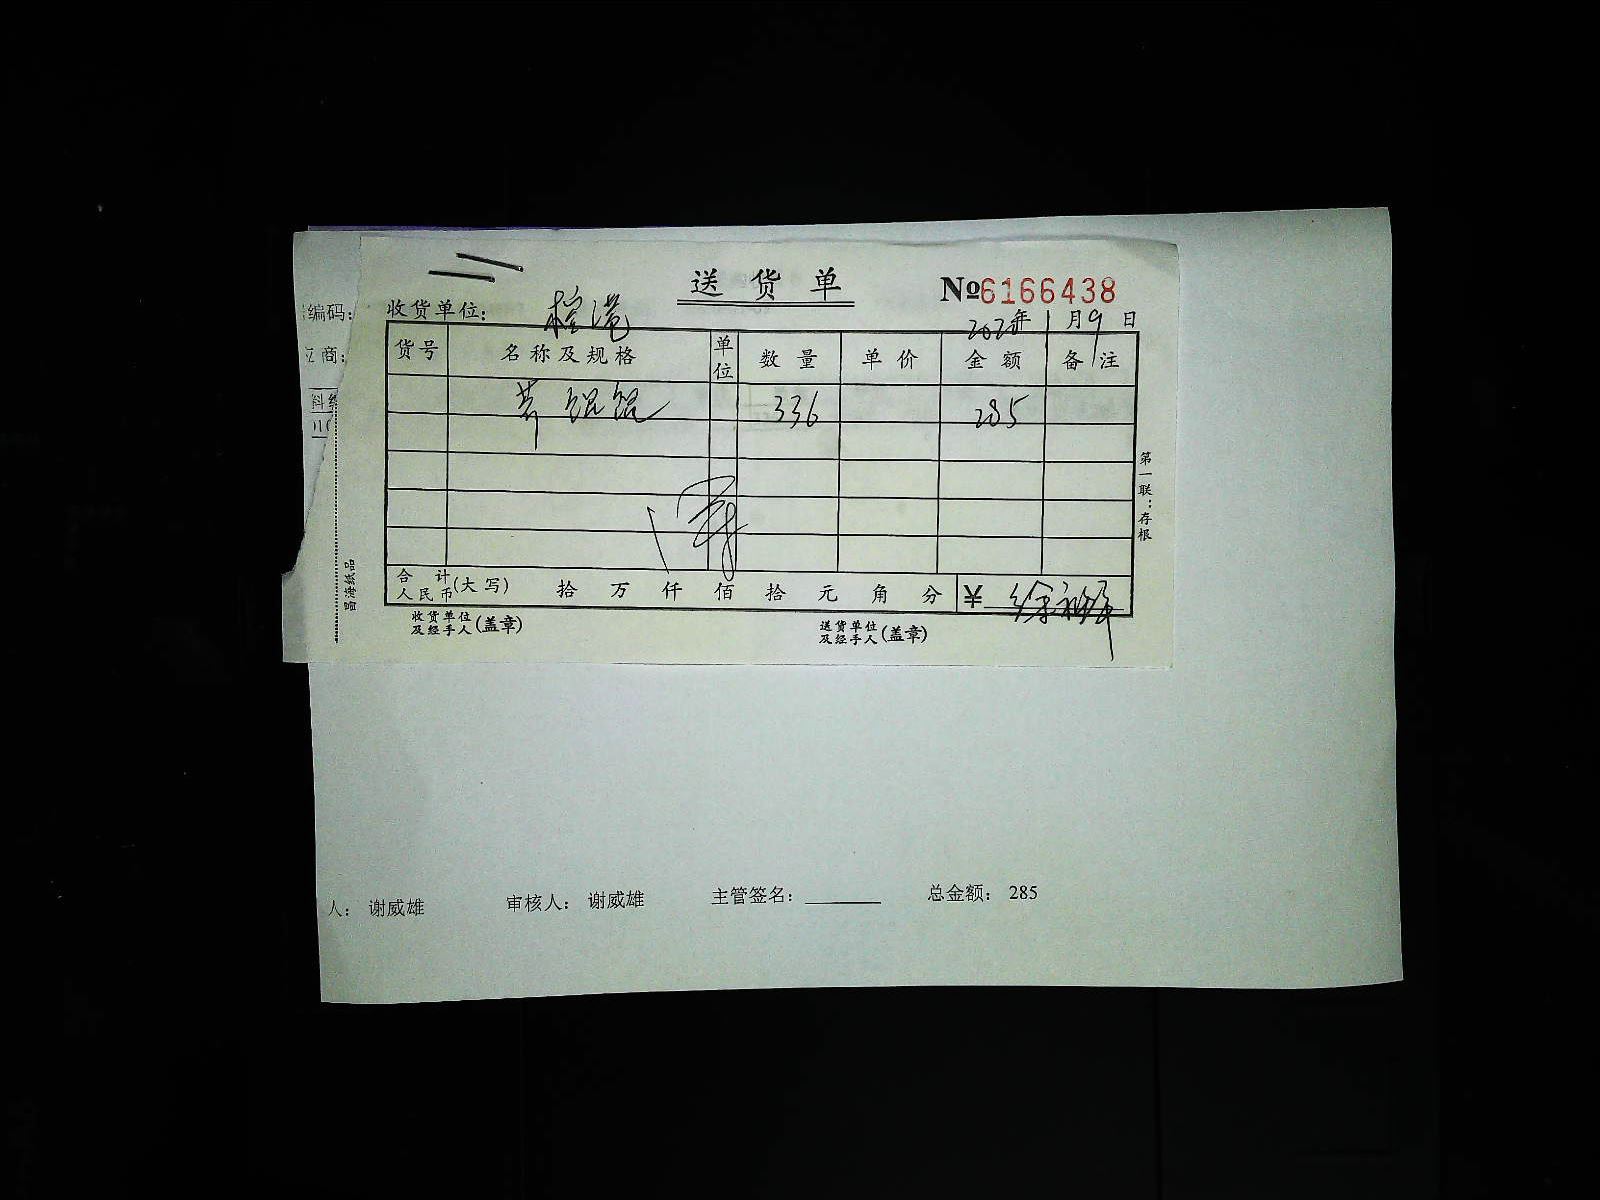 送货单 №6166438
编码：
收货单位： 年1月9日
商：
货号 名称及规格 单位 数量 单价 金额 备注
336 285
第一联：存根
昌海纸品
合计人民币(大写) 拾 万 仟 佰 拾 元 角 分 ¥
收货单位及经手人(盖章) 送货单位及经手人(盖章)
人： 谢威雄 审核人： 谢威雄 主管签名： 总金额： 285